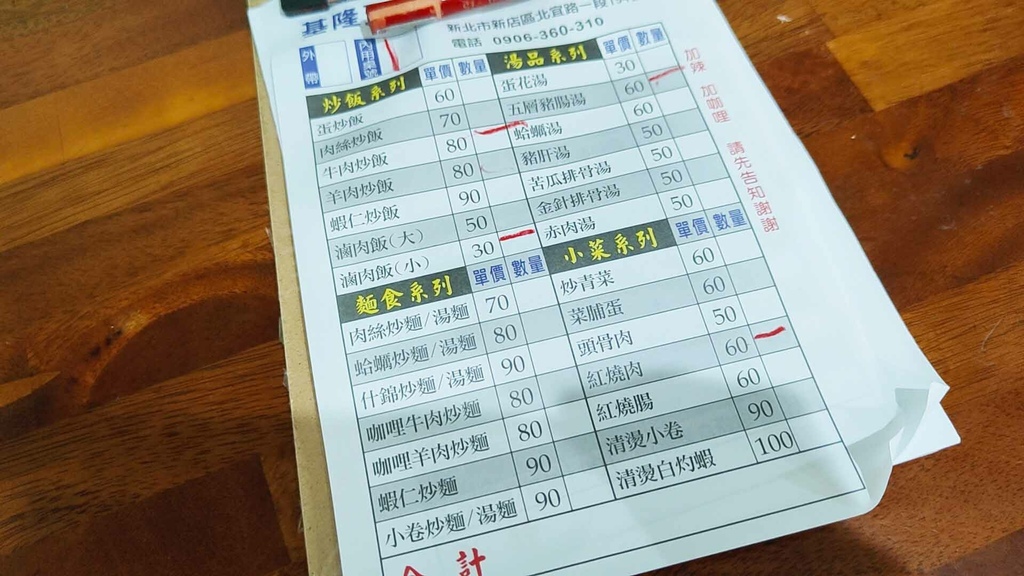 基隆
新北市新店區北宜路一段
電話 0906-360-310
外帶
炒飯系列 單價 數量
蛋炒飯 60
肉絲炒飯 70
牛肉炒飯 80
羊肉炒飯 80
蝦仁炒飯 90
滷肉飯(大) 50
滷肉飯(小) 30
麵食系列 單價 數量
肉絲炒麵/湯麵 70
蛤蠣炒麵/湯麵 80
什錦炒麵/湯麵 90
咖哩牛肉炒麵 80
咖哩羊肉炒麵 80
蝦仁炒麵 90
小卷炒麵/湯麵 90
湯品系列 單價 數量
蛋花湯 30
五層豬腸湯 60
蛤蠣湯 60
豬肝湯 50
苦瓜排骨湯 50
金針排骨湯 50
赤肉湯 50
小菜系列 單價 數量
炒青菜 60
菜脯蛋 60
頭骨肉 50
紅燒肉 60
紅燒腸 60
清燙小卷 90
清燙白灼蝦 100
加辣 加咖哩 請先告知謝謝
合計